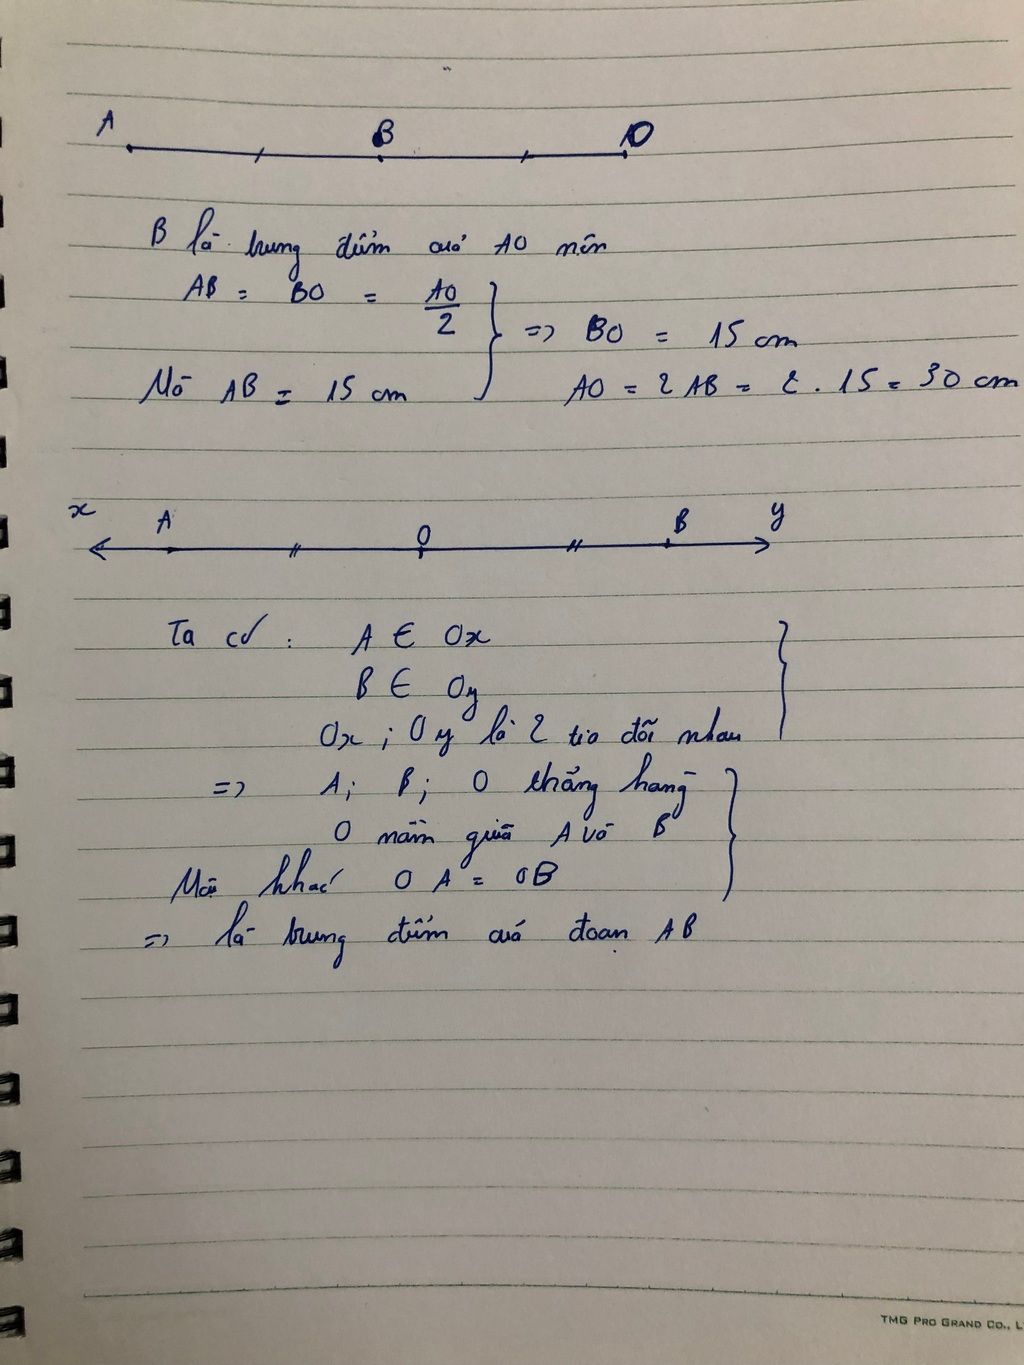 A B O
B là trung điểm của AO nên
AB = BO = AO/2
=> BO = 15 cm
Mà AB = 15 cm
AO = 2AB = 2 . 15 = 30 cm
x A O B y
Ta có : A ∈ Ox
B ∈ Oy
Ox ; Oy là 2 tia đối nhau
=> A; B; O thẳng hàng
O nằm giữa A và B
Mặt khác OA = OB
=> là trung điểm của đoạn AB
TMG PRO GRAND CO., L